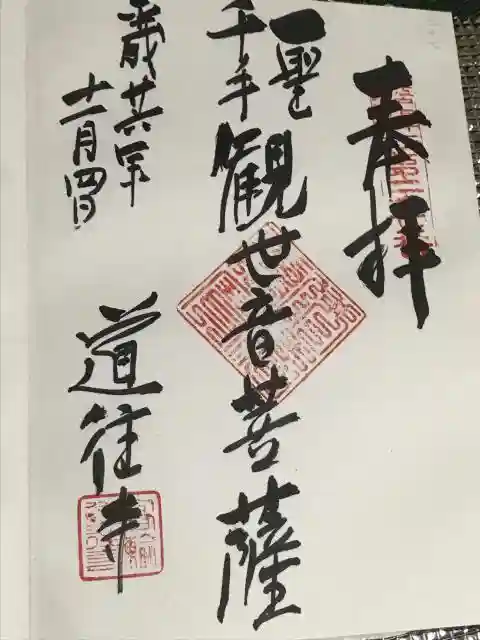 奉拝
聖
千手
観世音菩薩
廿六年
十一月四日
道往寺